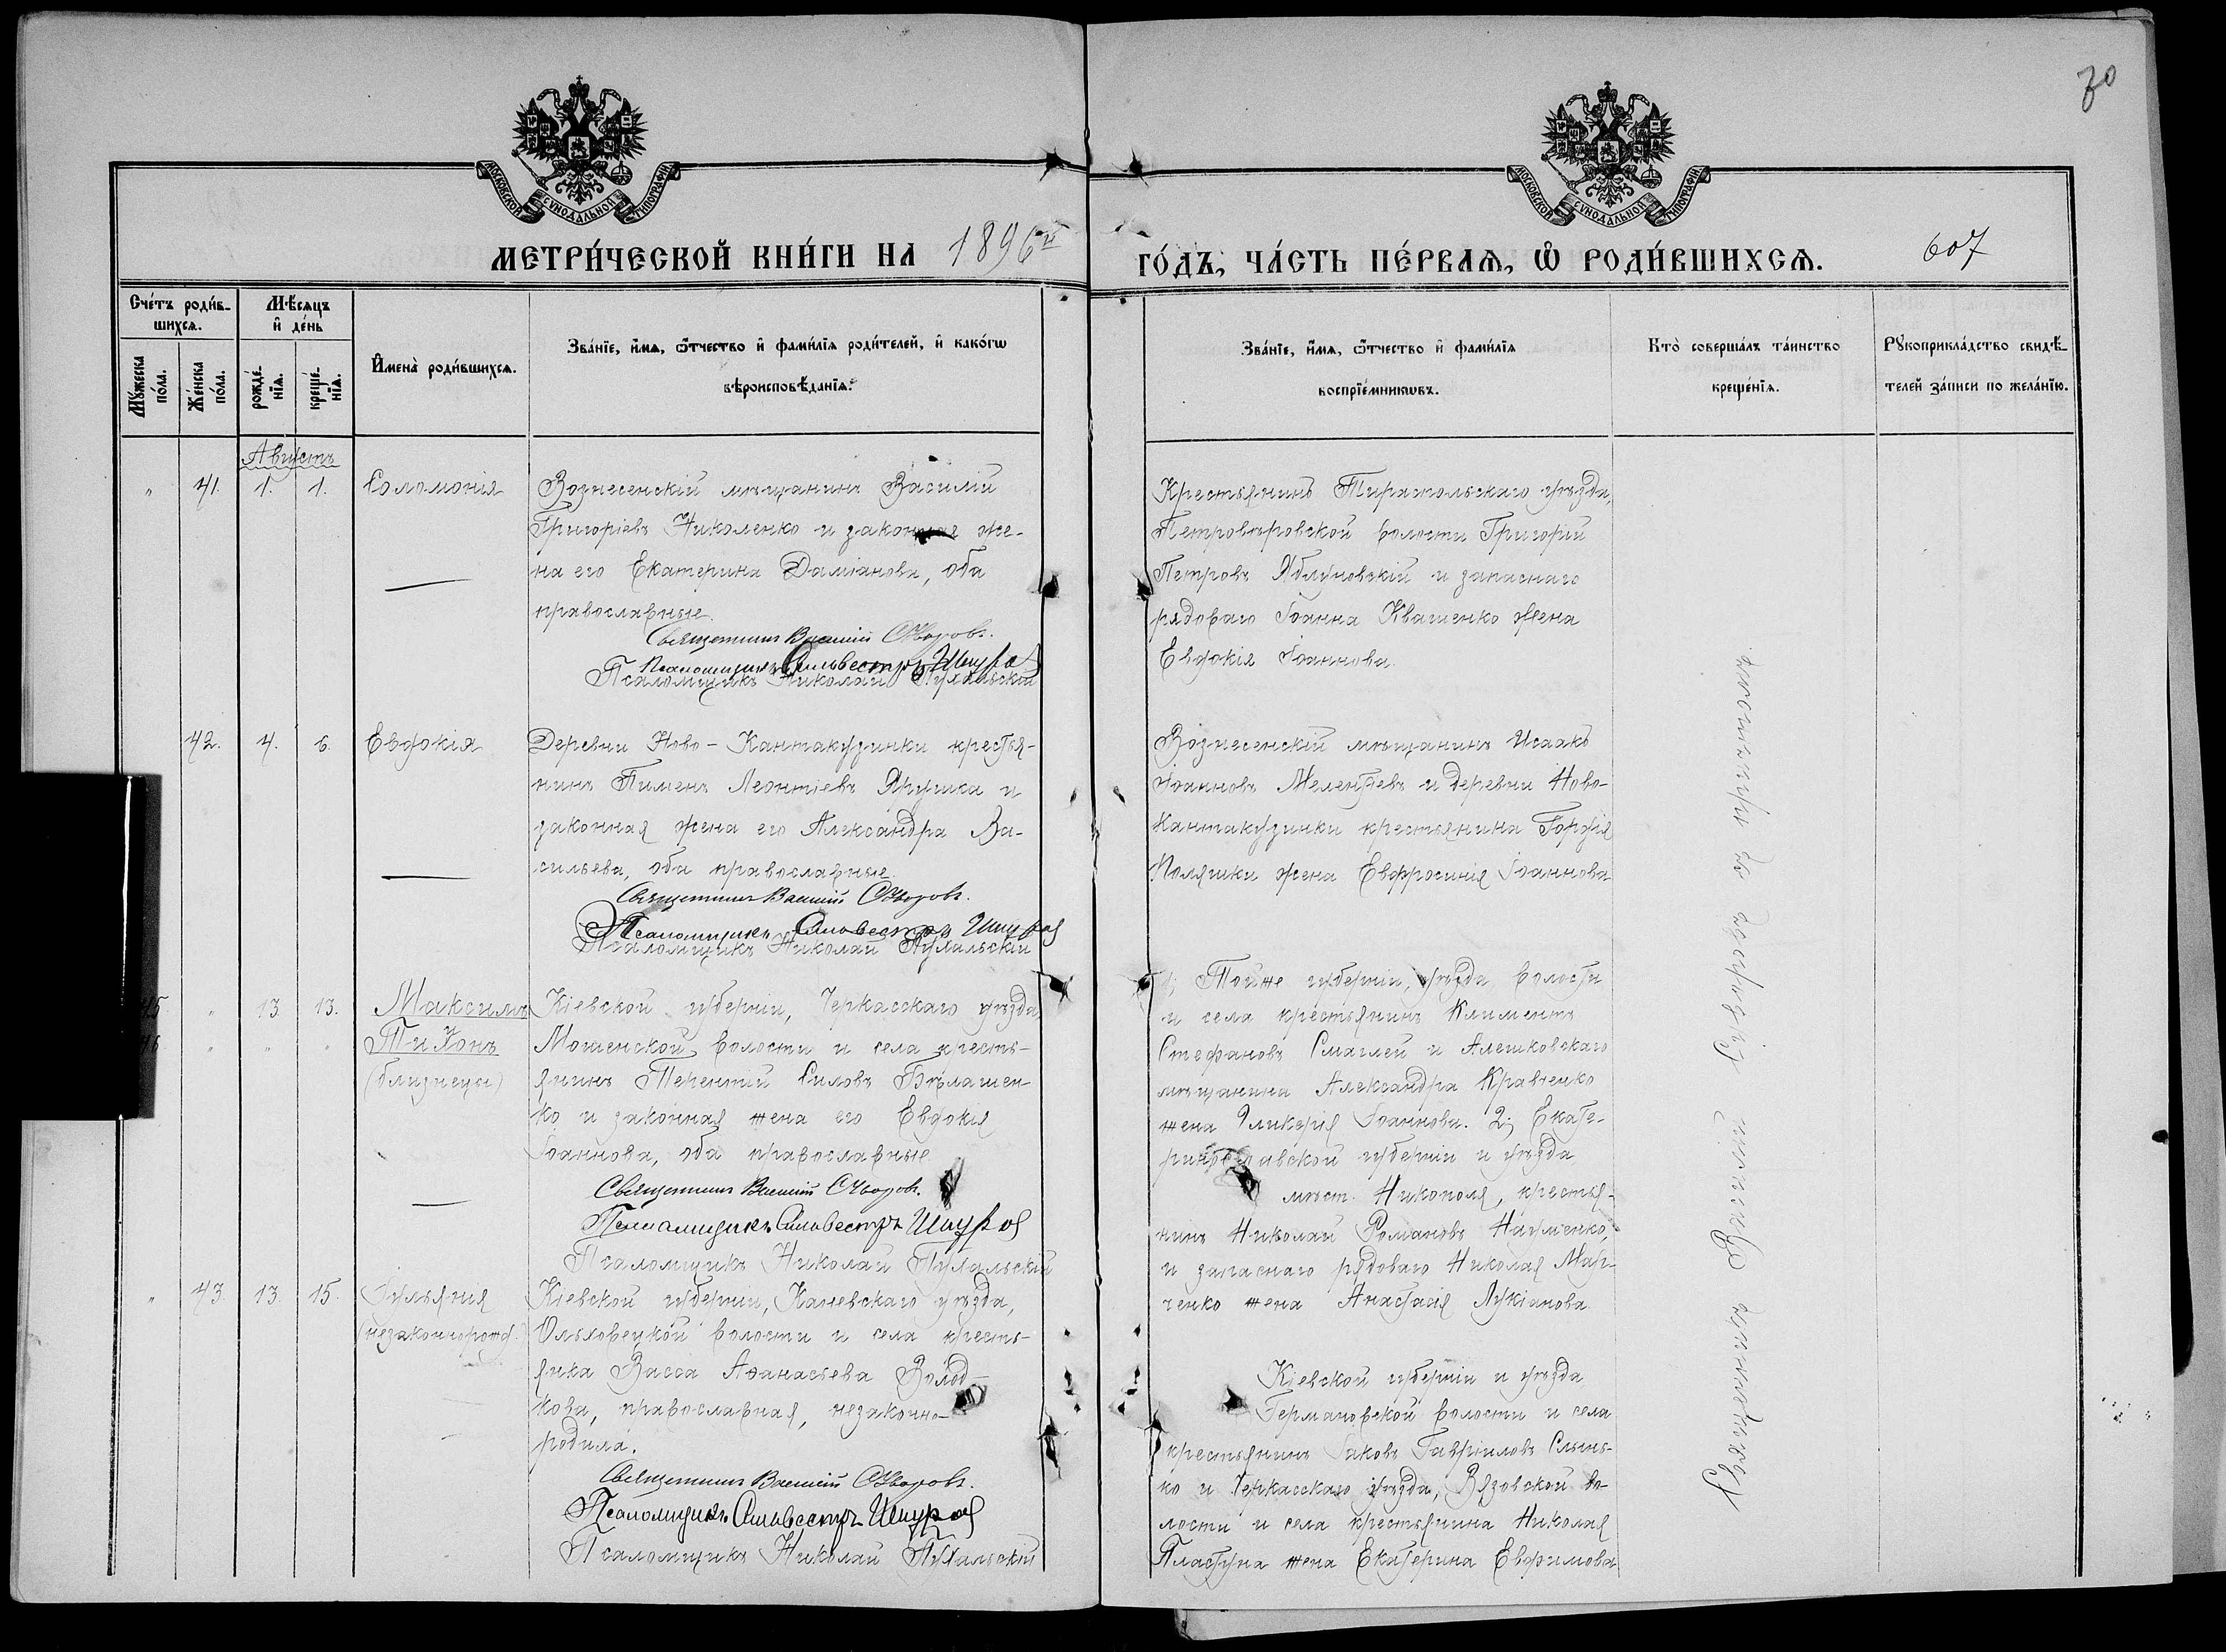 30
МОСКОВСКОЙ СУНОДАЛЬНОЙ ТИПОГРАФІИ
МОСКОВСКОЙ СУНОДАЛЬНОЙ ТИПОГРАФІИ
МЕТРИ́ЧЕСКОЙ КНИ́ГИ НА 1896й
ГО́ДЪ, ЧА́СТЬ ПЕ́РВАѦ, Ѡ҆ РОДИ́ВШИХСѦ.
607
Сче́тъ роди́в-
шихсѧ.
Мѣ́сѧцъ
и҆ де́нь
Мꙋ́жеска
по́ла.
Же́нска
по́ла.
рожде́-
нїѧ.
креще́-
нїѧ.
И҆мена̀ роди́вшихсѧ.
Зва́нїе, и҆́мѧ, ѻ҆́тчество и҆ фами́лїѧ роди́телей, и҆ како́гѡ
вѣроисповѣ́данїѧ.
Зва́нїе, и҆́мѧ, ѻ҆́тчество и҆ фами́лїѧ
воспрїе́мникѡвъ.
Кто̀ соверша́лъ та́инство
креще́нїѧ.
Рꙋкоприкла́дство свидѣ́-
телей за́писи по жела́нїю.
Августъ
" 41. 1. 1. Соломонія
Вознесенскій мѣщанинъ Василій
Григоріевъ Николенко и законная же-
на его Екатерина Даміанова, оба
православные.
Священникъ Василій
Псаломщикъ Сильвестръ
Псаломщикъ Николай
Крестьянинъ Тираспольскаго уѣзда,
Петровѣровской волости Григорій
Петровъ Яблуновскій и запаснаго
рядоваго Іоанна Квашенко жена
Евдокія Іоаннова.
42. 4. 6. Евдокія
Деревни Ново-Кантакузинки крестья-
нинъ Пименъ Леонтіевъ Ярушка и
законная жена его Александра Ва-
сильева, оба православные.
Священникъ Василій
Псаломщикъ Сильвестръ
Псаломщикъ Николай
Вознесенскій мѣщанинъ Исаакъ
Іоанновъ Мелентіевъ и деревни Ново-
Кантакузинки крестьянина Гордія
Поляшки жена Евфросинія Іоаннова
45. " 13. 13. Максимъ
" " " Тихонъ
(близнецы)
Кіевской губерніи, Черкасскаго уѣзда,
Мошенской волости и села кресть-
янинъ Терентій Силовъ Бѣлашен-
ко и законная жена его Евдокія
Іоаннова, оба православные
Священникъ Василій
Псаломщикъ Сильвестръ
Псаломщикъ Николай
1; Тойже губерніи, уѣзда волости
и села крестьянинъ Климентъ
Стефановъ Смаглей и Алешковскаго
мѣщанина Александра Кравченко
жена Гликерія Іоаннова. 2; Екате-
ринославской губерніи и уѣзда
мѣст. Никополя, крестья-
нинъ Николай Романовъ Науменко,
и запаснаго рядоваго Николая Мар-
ченко жена Анастасія Лукіанова
" 43. 13. 15. Іульянія
(незаконнорожд.)
Кіевской губерніи, Каневскаго уѣзда,
Ольховецкой волости и села кресть-
янка Васса Аѳанасьева Волод-
кова, православная, незаконно-
родила.
Священникъ Василій
Псаломщикъ Сильвестръ
Псаломщикъ Николай
Кіевской губерніи и уѣзда
Германовской волости и села
крестьянинъ Іаковъ Гавріиловъ Слынь-
ко и Черкасскаго уѣзда, Вязовской во-
лости и села крестьянина Николая
Пластуна жена Екатерина Евфимова
Священникъ Василій
съ причтомъ.